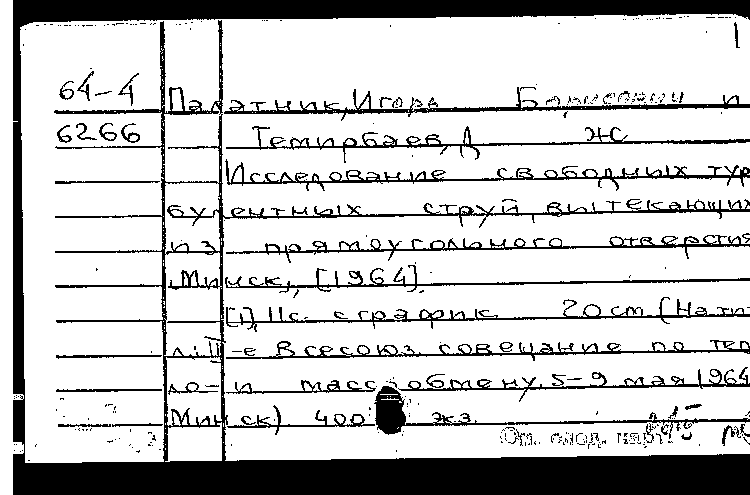 1
64-4 Палатник, Игорь Борисович и
6266 Темирбаев, Д ж
Исследование свободных тур
булентных струй, вытекающих
из прямоугольного отверстия
Минск, [1964].
[1], 11с. с график 20 cm (На тит
л.: II-е Всесоюз. совещание по теп
ло- и массообмену. 5-9 мая 1964
Минск) 400 экз